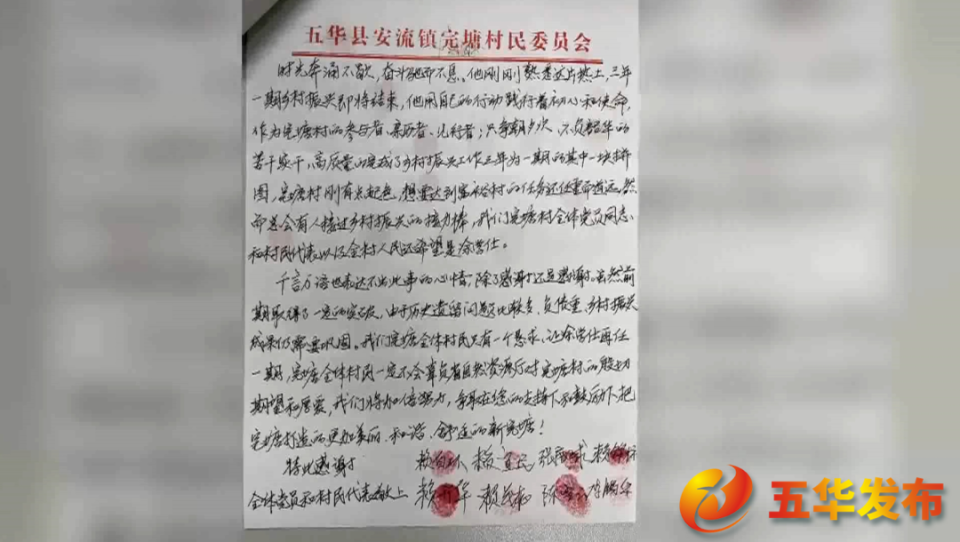 五华县安流镇完塘村民委员会
时光奔涌不歇，奋斗驰而不息。他刚刚熟悉这片热土，三年
一期乡村振兴即将结束，他用自己的行动践行着初心和使命，
作为完塘村的参与者、亲历者、见证者；只争朝夕，不负韶华的
苦干实干，高质量的完成了乡村振兴工作三年为一期的其中一块拼
图，完塘村刚有点起色，想要达到富裕村的任务还任重而道远。然
而总会有人接过乡村振兴的接力棒，我们完塘村全体党员同志、
和村民代表以及全村人民还希望是涂书仕。
千言万语也表达不出此事的心情，除了感谢还是感谢。虽然前
期取得了一定的突破，由于历史遗留问题比较多，负债重，乡村振兴
成果仍需要巩固。我们完塘全体村民只有一个恳求，让涂书仕再任
一期，完塘全体村民一定不会辜负省自然资源厅对完塘村的殷切
期望和厚爱，我们将加倍努力，争取在您的支持下和鼓励下把
完塘打造的更加美丽、和谐、舒适的新完塘！
特此感谢
全体党员和村民代表敬上
五华发布